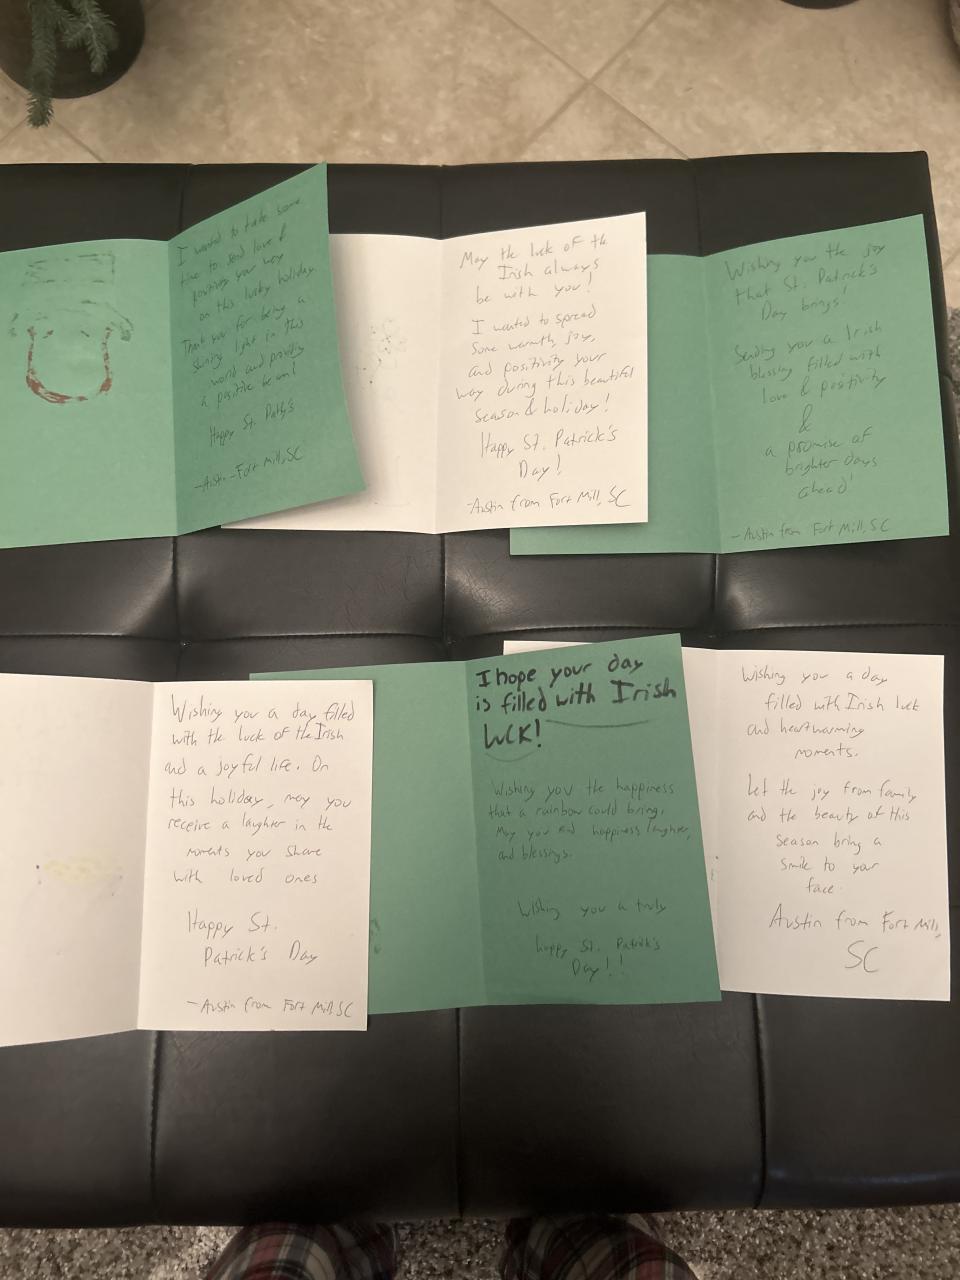 I wanted to take some
time to send love &
positivity your way
on this lucky holiday.
Thank you for being a
shining light in this
world and providing
a positive beam!
Happy St. Patty's
-Austin-Fort Mill, SC
May the luck of the
Irish always
be with you!
I wanted to spread
some warmth, joy,
and positivity your
way during this beautiful
season & holiday!
Happy St. Patrick's
Day!
-Austin from Fort Mill, SC
Wishing you the joy
that St. Patrick's
Day brings!
Sending you a Irish
blessing filled with
love & positivity
&
a promise of
brighter days
ahead!
- Austin from Fort Mill, SC
Wishing you a day filled
with the luck of the Irish
and a joyful life. On
this holiday, may you
receive a laughter in the
moments you share
with loved ones
Happy St.
Patrick's Day
-Austin from Fort Mill, SC
I hope your day
is filled with Irish
luck!
Wishing you the happiness
that a rainbow could bring.
May you find happiness, laughter,
and blessings.
Wishing you a truly
happy St. Patrick's
Day!!
Wishing you a day
filled with Irish luck
and heartwarming
moments.
Let the joy from family
and the beauty of this
season bring a
smile to your
face.
Austin from Fort Mill,
SC